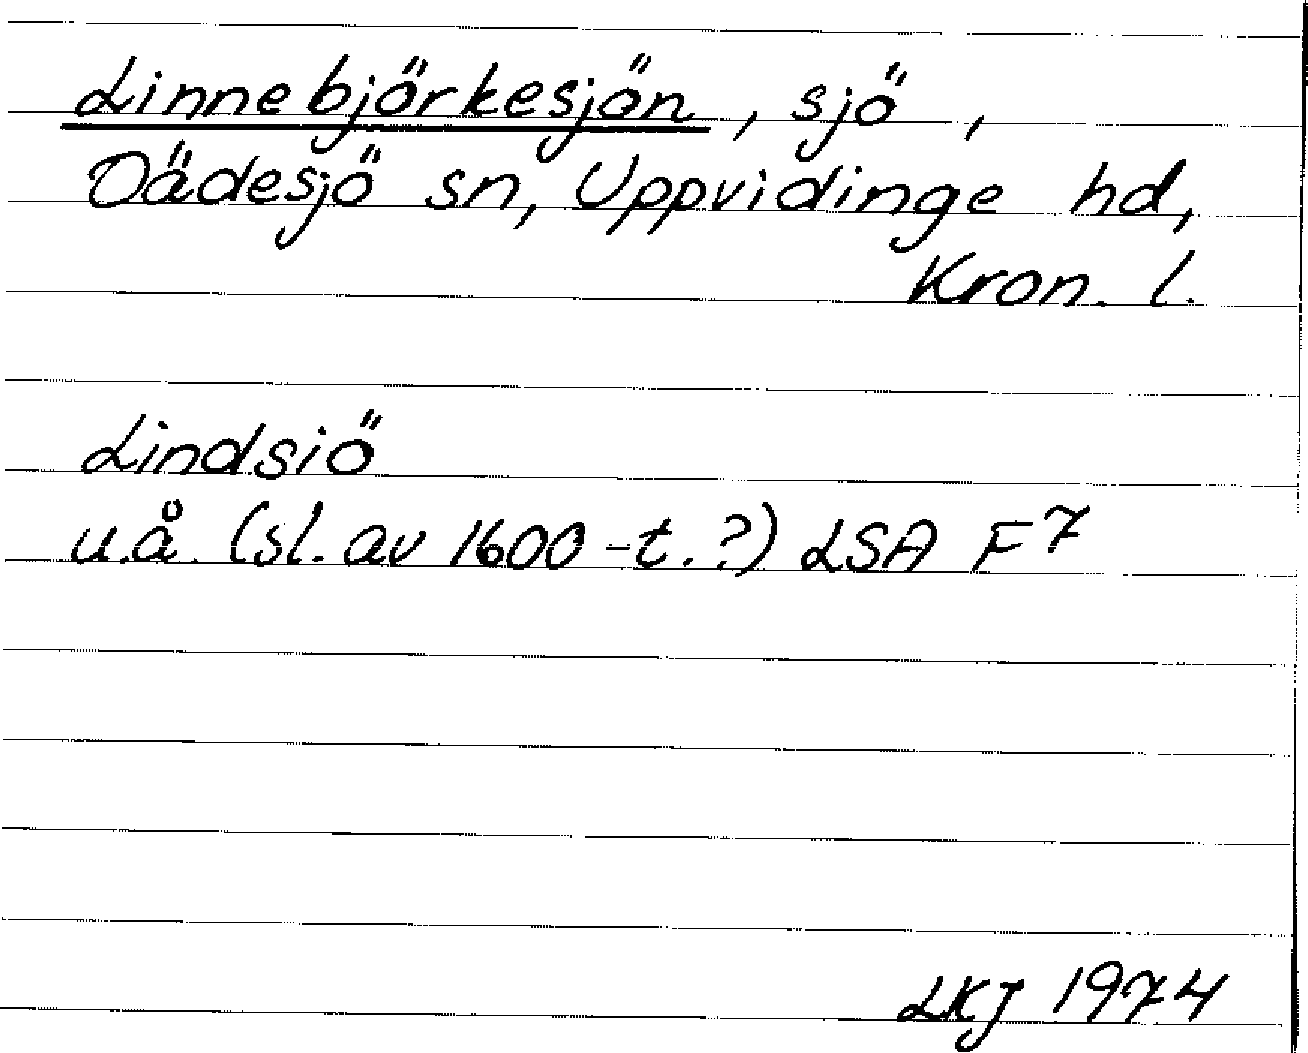 Linnebjörkesjön, sjö,
Dädesjö sn, Uppvidinge hd,
Kron. l.
Lindsiö
u.å. (sl. av 1600-t.?) LSA F7
LKJ 1974